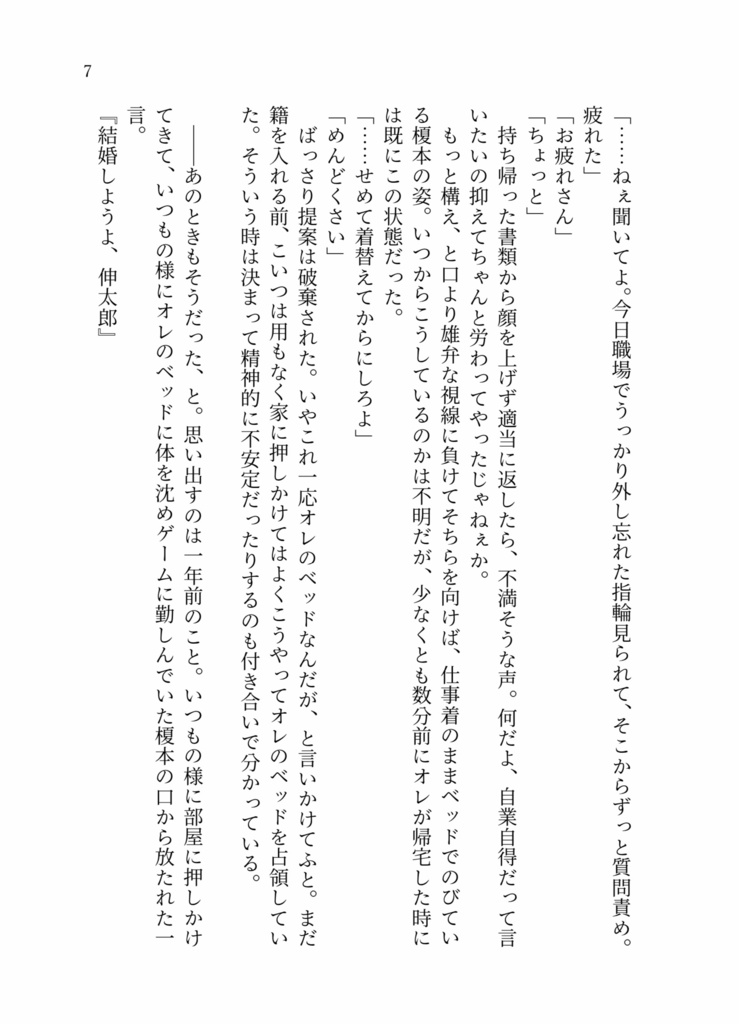 「……ねぇ聞いてよ。今日職場でうっかり外し忘れた指輪見られて、そこからずっと質問責め。
疲れた」
「お疲れさん」
「ちょっと」
　持ち帰った書類から顔を上げず適当に返したら、不満そうな声。何だよ、自業自得だって言
いたいの抑えてちゃんと労わってやったじゃねぇか。
　もっと構え、と口より雄弁な視線に負けてそちらを向けば、仕事着のままベッドでのびてい
る榎本の姿。いつからこうしているのかは不明だが、少なくとも数分前にオレが帰宅した時に
は既にこの状態だった。
「……せめて着替えてからにしろよ」
「めんどくさい」
　ばっさり提案は破棄された。いやこれ一応オレのベッドなんだが、と言いかけてふと。まだ
籍を入れる前、こいつは用もなく家に押しかけてはよくこうやってオレのベッドを占領してい
た。そういう時は決まって精神的に不安定だったりするのも付き合いで分かっている。
　――あのときもそうだった、と。思い出すのは一年前のこと。いつもの様に部屋に押しかけ
てきて、いつもの様にオレのベッドに体を沈めゲームに勤しんでいた榎本の口から放たれた一
言。
『結婚しようよ、伸太郎』
7